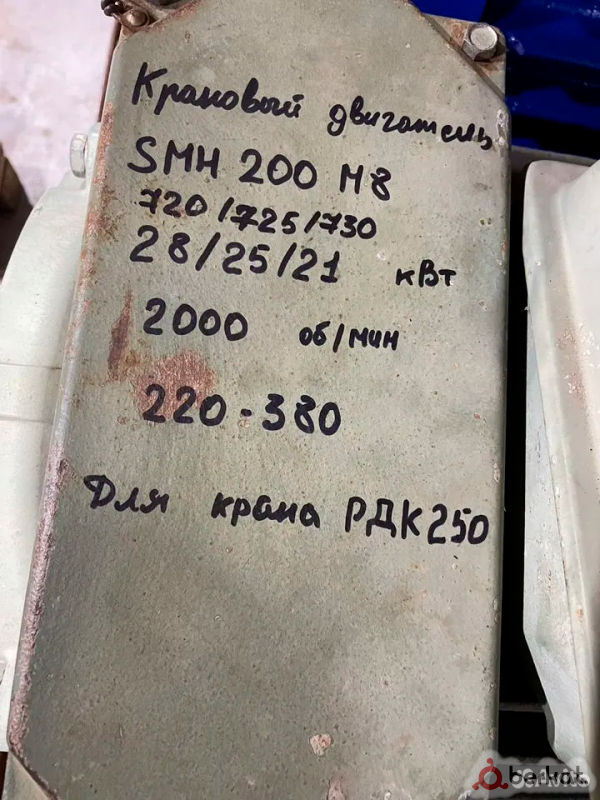 Крановый двигатель
SMH 200 M8
720/725/730
28/25/21 кВт
2000 об/мин
220-380
Для крана РДК250